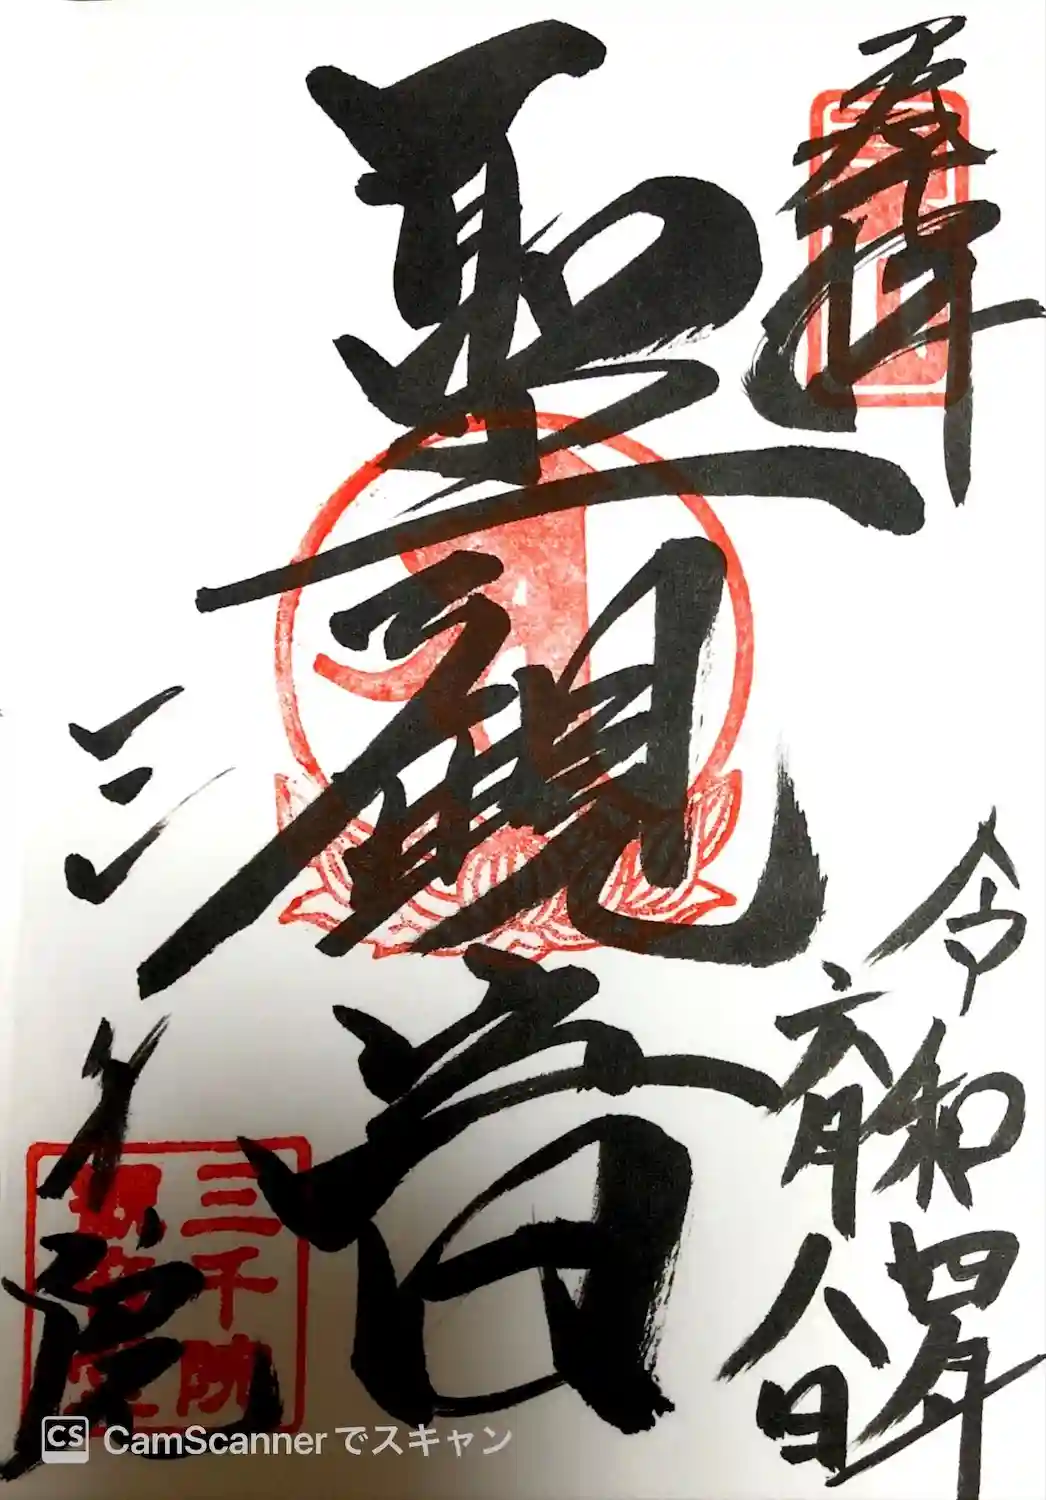 奉拝
令和四年
六月八日
聖観音
三千院
三千院
CS CamScanner でスキャン